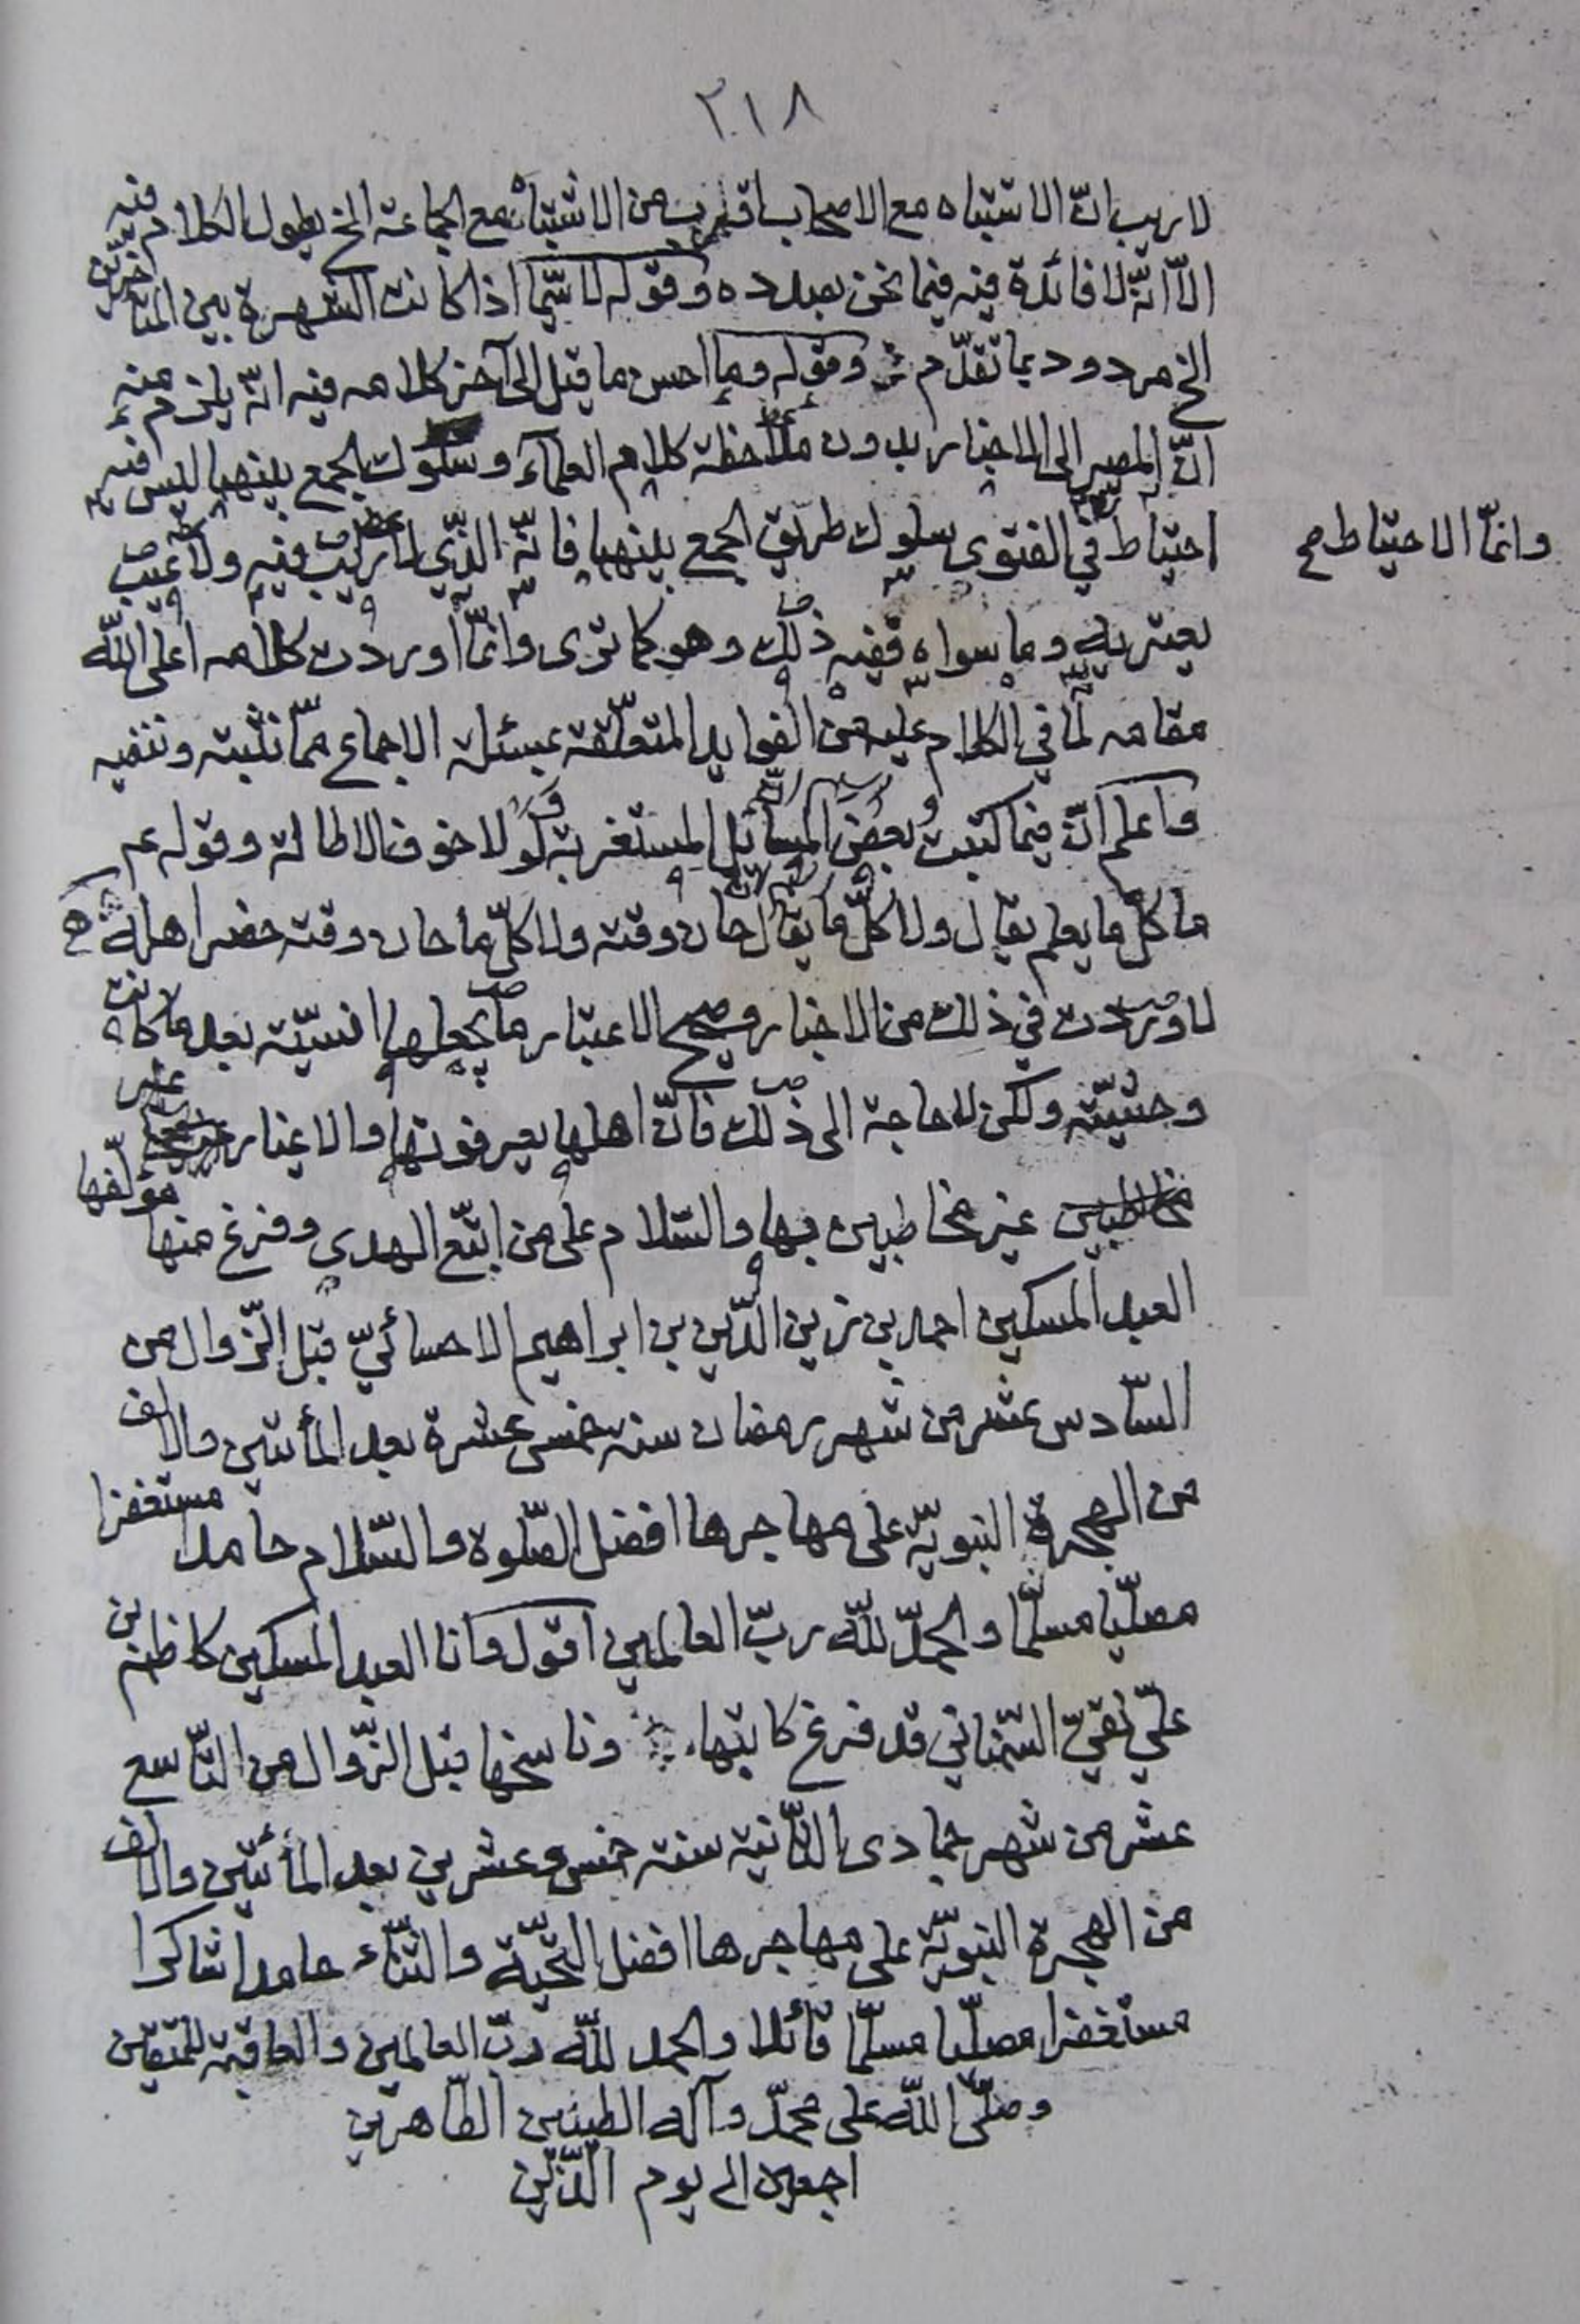 ٢١٨
لا ريب انّ الاشتباه مع الاصحاب اقرب من الاشتباه مع الجماعة الخ يطول الكلام فيه
الّا انّه لا فائدة فيه فيما نحن بصدده وقوله لا سيّما اذا كانت الشهرة بين المتأخرين
الخ مردود بما تقدّم وقوله وما احسن ما قيل الى آخر كلامه فيه انّه يلزم منه
انّ المصير الى الاخبار بدون ملاحظة كلام العلمآء وسلوك الجمع بينهما ليس فيه
احتياط في الفتوى سلوك طريق الجمع بينهما فانّه الذّي لا ريب فيه ولا عيب
وانمّا الاحتياط صح
يعتريه وما سواه ففيه ذلك وهو كما ترى وانّما اوردت كلامه اعلى اللّه
مقامه لما في الكلام عليه من الفوايد المتعلّقة بمسئلة الاجماع ممّا نثبته وننفيه
واعلم انّ فيما كتبت بعض المسائل المستغربة ولولا خوف الاطالة وقوله عم
ما كلّ ما يعلم يقال ولا كلّ ما يقال حان وقته ولا كلّ ما حان وقته حضر اهله صح
لاوردت في ذلك من الاخبار وصحيح الاعتبار ما يجعلها انسيّة بعد ما كانت
وحشيّة ولكن لا حاجة الى ذلك فانّ اهلها يعرفونها والاغيار
غير مخاطبين بها والسّلام على من اتّبع الهدى وفرغ منها مؤلّفها
العبد المسكين احمد بن زين الدّين بن ابراهيم الاحسائيّ قبل الزّوال من
السّادس عشر من شهر رمضان سنة خمس عشرة بعد المأتين والالف
من الهجرة النبويّة على مهاجرها افضل الصّلوة والسّلام حامدا مستغفرا
مصلّيا مسلّما والحمدّ للّه ربّ العالمين اقول وانا العبد المسكين كاظم بن
علّي نقيّ السّمناني قد فرغ كاتبها وناسخها قبل الزّوال من التّاسع
عشر من شهر جمادى الثّانية سنة خمس وعشرين بعد المأتين والالف
من الهجرة النبويّة على مهاجرها افضل التّحيّة والثّناء حامدا شاكرا
مستغفرا مصلّيا مسلّما قائلا والحمد للّه ربّ العالمين والعاقبة للمتقين
وصلّى اللّه على محمدّ وآله الطيبين الطّاهرين
اجمعين الى يوم الدّين